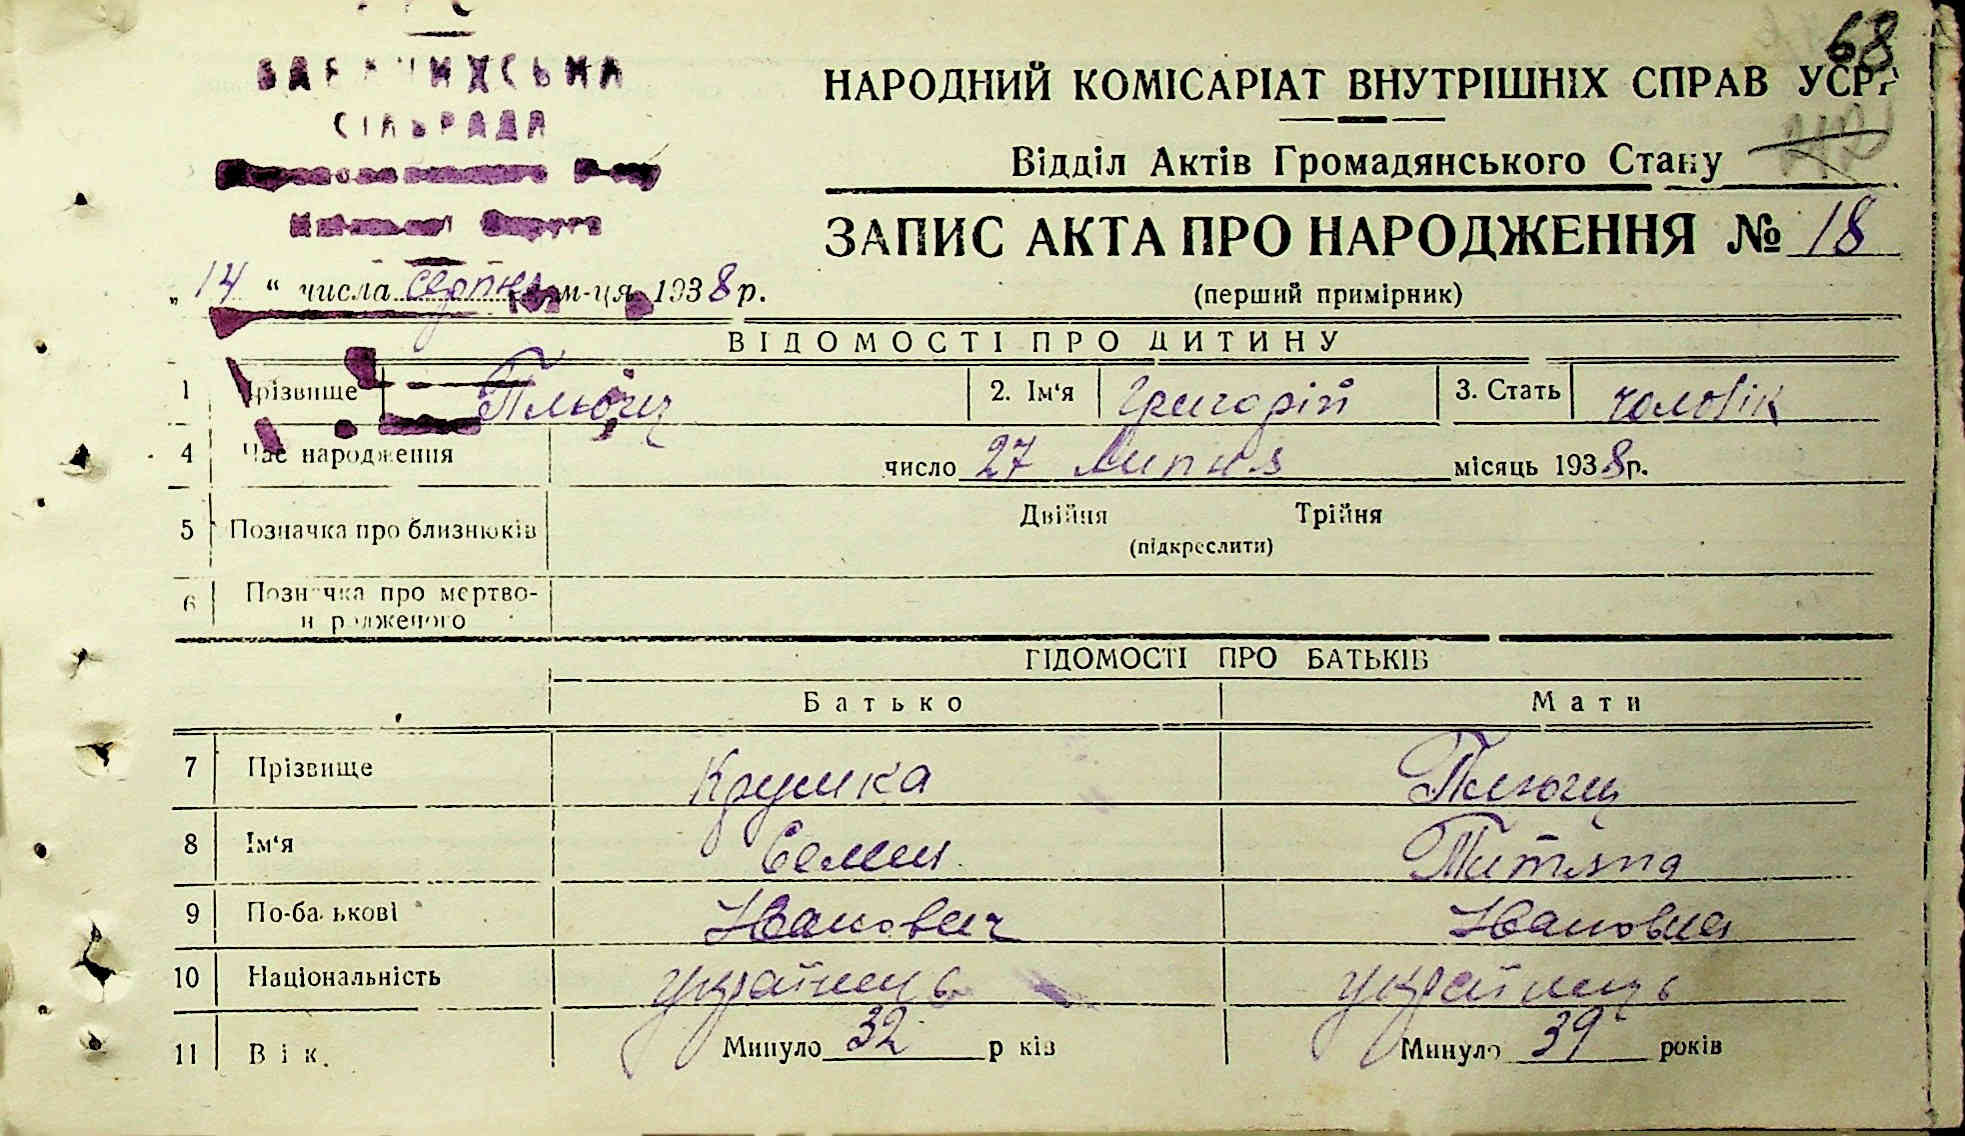 68
СІЛЬРАДА
НАРОДНИЙ КОМІСАРІАТ ВНУТРІШНІХ СПРАВ УСРР
Відділ Актів Громадянського Стану
ЗАПИС АКТА ПРО НАРОДЖЕННЯ № 18
(перший примірник)
„ 14 “ числа серпня м-ця 1938 р.
ВІДОМОСТІ ПРО ДИТИНУ
1 Прізвище Плющ 2. Ім‘я Григорій 3. Стать чоловік
4 Час народження число 27 Липня місяць 1938 р.
5 Позначка про близнюків Двійня Трійня
(підкреслити)
6 Позначка про мертво-
н роджечого
ГІДОМОСТІ ПРО БАТЬКІВ
Батько Мати
7 Прізвище Крушка Плющ
8 Ім‘я Семен Титяна
9 По-ба ькові Іванович Івановна
10 Національність українець українець
11 Вік. Минуло 32 р ків Минуло 39 років